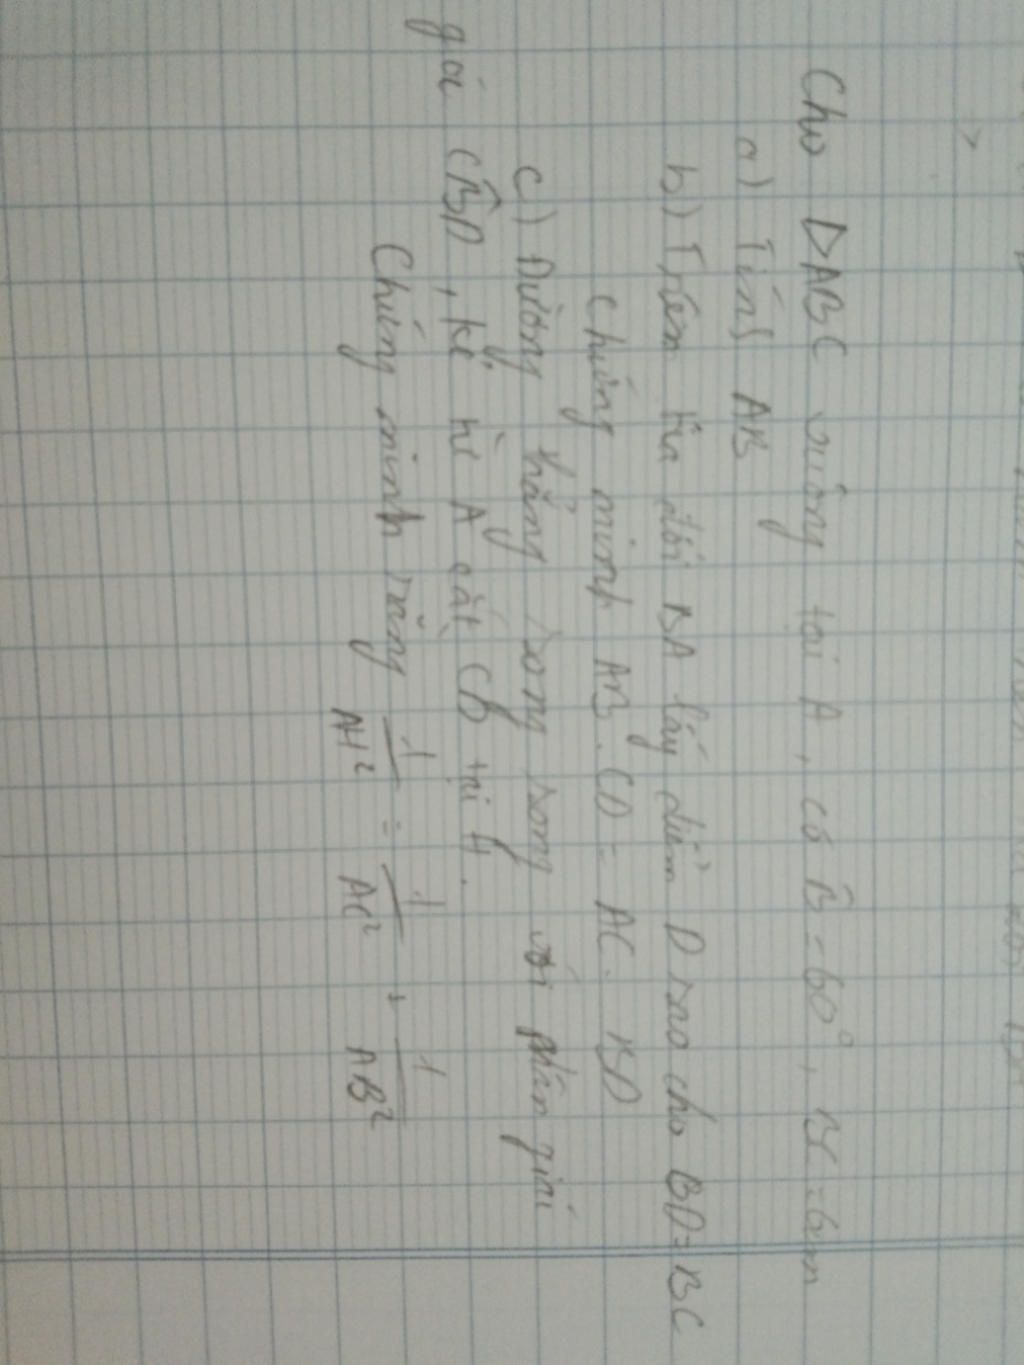 Cho ΔABC vuông tại A, có B̂ = 60°, BC = 6cm
a) Tính AB
b) Trên tia đối BA lấy điểm D sao cho BD = BC
Chứng minh AB. CD = AC. BD
c) Đường thẳng song song với phân giác
góc CB̂D, kẻ từ A cắt CD tại H.
Chứng minh rằng 1/AH² = 1/AC² + 1/AB²